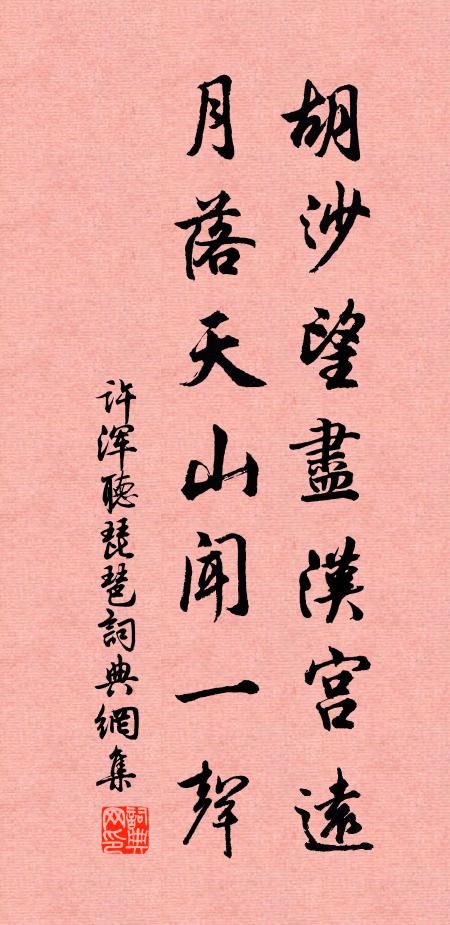 胡沙望盡漢宮遠
月落天山聞一聲
許渾聽琵琶詞典網集
詞典網印